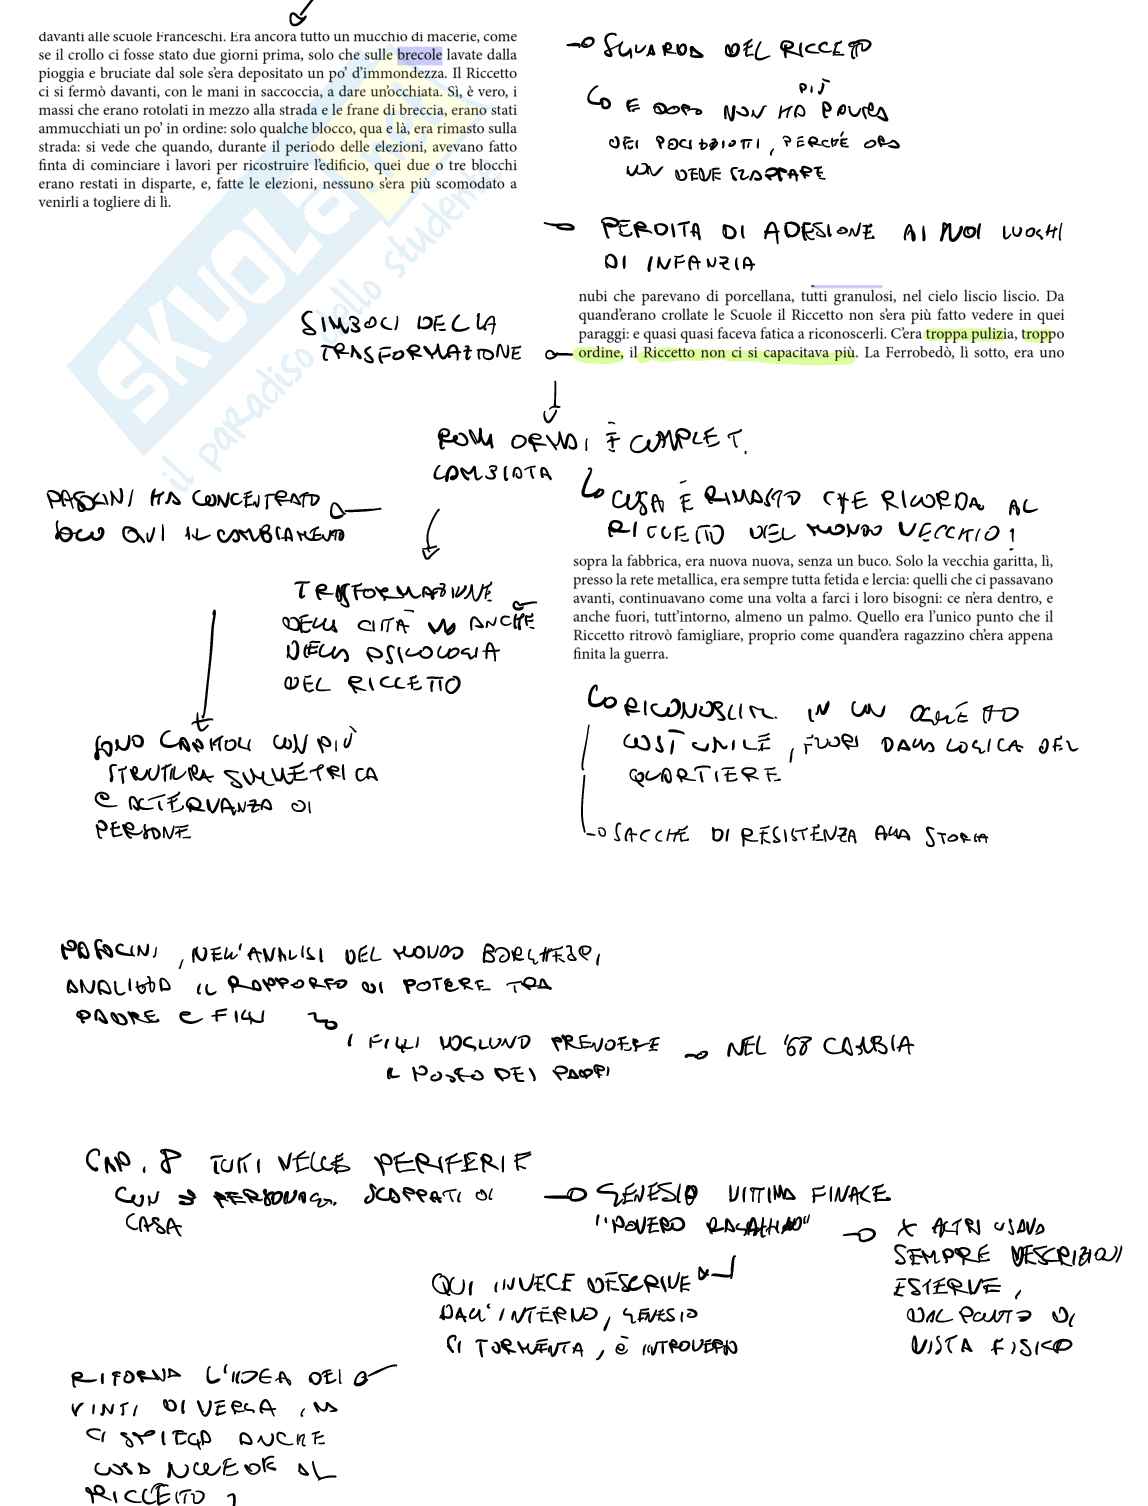 davanti alle scuole Franceschi. Era ancora tutto un mucchio di macerie, come
se il crollo ci fosse stato due giorni prima, solo che sulle brecole lavate dalla
pioggia e bruciate dal sole s'era depositato un po' d'immondezza. Il Riccetto
ci si fermò davanti, con le mani in saccoccia, a dare un'occhiata. Sì, è vero, i
massi che erano rotolati in mezzo alla strada e le frane di breccia, erano stati
ammucchiati un po' in ordine: solo qualche blocco, qua e là, era rimasto sulla
strada: si vede che quando, durante il periodo delle elezioni, avevano fatto
finta di cominciare i lavori per ricostruire l'edificio, quei due o tre blocchi
erano restati in disparte, e, fatte le elezioni, nessuno s'era più scomodato a
venirli a togliere di lì.
SGUARDO DEL RICCETTO
E DOPO NON HA PIÙ PAURA
DEI POLIZIOTTI, PERCHÉ ORA
NON DEVE SCAPPARE
PERDITA DI ADESIONE AI SUOI LUOGHI
DI INFANZIA
nubi che parevano di porcellana, tutti granulosi, nel cielo liscio liscio. Da
quand'erano crollate le Scuole il Riccetto non s'era più fatto vedere in quei
paraggi: e quasi quasi faceva fatica a riconoscerli. C'era troppa pulizia, troppo
ordine, il Riccetto non ci si capacitava più. La Ferrobedò, lì sotto, era uno
SIMBOLI DELLA
TRASFORMAZIONE
ROMA ORMAI È COMPLET.
CAMBIATA
COSA È RIMASTO CHE RICORDA AL
RICCETTO DEL MONDO VECCHIO?
PASOLINI HA CONCENTRATO
SOLO QUI IL CAMBIAMENTO
sopra la fabbrica, era nuova nuova, senza un buco. Solo la vecchia garitta, lì,
presso la rete metallica, era sempre tutta fetida e lercia: quelli che ci passavano
avanti, continuavano come una volta a farci i loro bisogni: ce n'era dentro, e
anche fuori, tutt'intorno, almeno un palmo. Quello era l'unico punto che il
Riccetto ritrovò famigliare, proprio come quand'era ragazzino ch'era appena
finita la guerra.
TRASFORMAZIONE
DELLA CITTÀ MA ANCHE
DELLA PSICOLOGIA
DEL RICCETTO
RICONOSCIM. IN UN OGGETTO
COSÌ UMILE, FUORI DALLA LOGICA DEL
QUARTIERE
SACCHE DI RESISTENZA ALLA STORIA
SONO CAPITOLI CON PIÙ
STRUTTURA SIMMETRICA
E ALTERNANZA DI
PERSONE
PASOLINI, NELL'ANALISI DEL MONDO BORGHESE,
ANALIZZA IL RAPPORTO DI POTERE TRA
PADRE E FIGLI
I FIGLI VOGLIONO PRENDERE
IL POSTO DEI PADRI
NEL '68 CAMBIA
CAP. 8 TUTTI NELLE PERIFERIE
CON 3 PERSONAGG. SCAPPATI DI
CASA
GENESIO VITTIMA FINALE
"POVERO RAGAZZINO"
X ALTRI USAVA
SEMPRE DESCRIZIONI
ESTERNE,
DAL PUNTO DI
VISTA FISICO
QUI INVECE DESCRIVE
DALL'INTERNO, GENESIO
SI TORMENTA, È INTROVERSO
RITORNA L'IDEA DEI
VINTI DI VERGA, MA
CI SPIEGA ANCHE
COSA SUCCEDE AL
RICCETTO
SKUOLA.net
il paradiso dello studente